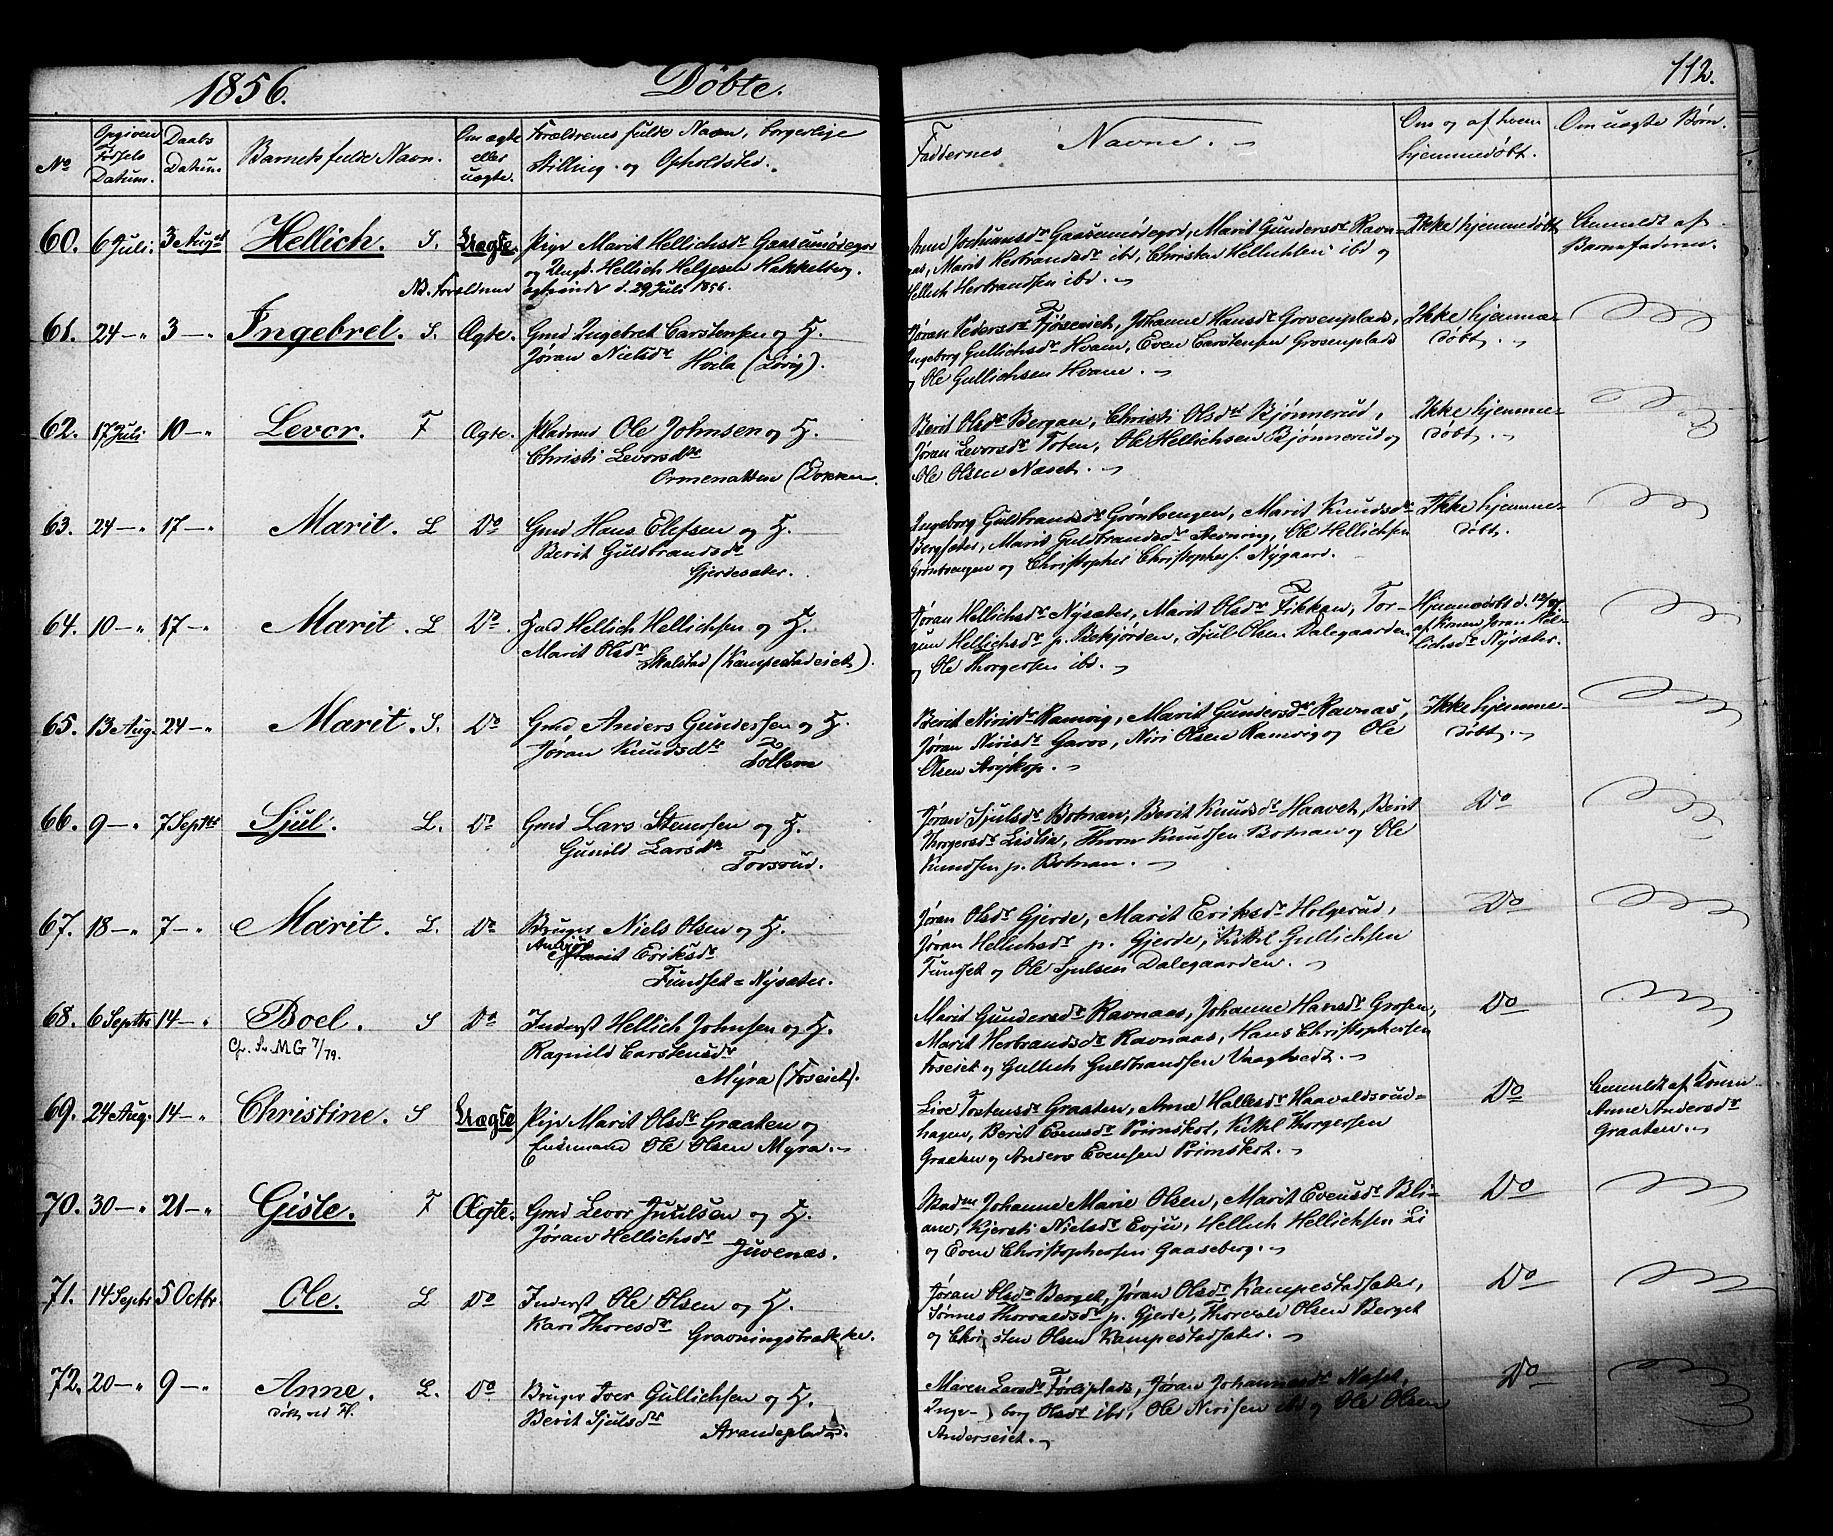 1856. Døbte. 112.
No
Opgiven Fødsels Datum.
Daabs Datum.
Barnets fulde Navn.
Om ægte eller uægte.
Forældrenes fulde Navn, borgerlige Stilling og Opholdsted.
Faddernes Navne.
Om og af hvem hjemmedøbt.
Om uægte Børn.
60. 6 Juli. 3 August Hellich. S. Uægte. Pige Marit Hellichsdr Gaasemødegrd
og Ungk. Hellich Helgesen Hakkelberg.
NB. Forældrene ægteviede d. 29 Juli 1856.
Anne Jochumsdr Gaasemødegrd, Marit Gundersdr Ravn-
aas, Marit Herbrandsdr ibd, Christen Hellichsen ibd og
Hellich Herbrandsen ibd.
Ikke hjemmedøbt
Anmeldt af
Barnefaderen.
61. 24 — " 3 — " Ingebrel. S. Ægte. Gmd Ingebret Carstensen og H.
Jøran Nielsdr Hvila (Lørig).
Jøran Pedersdr Fjøseeich, Johanne Hansdr Grosenplads,
Ingeborg Gullichsdr Hvam, Even Carstensen Grosenplads
og Ole Gullichsen Hvam.
Ikke hjemme-
døbt.
62. 17 Juli 10 — " Levor. F Ægte. Pladsmd Ole Johnsen og H.
Christi Levorsdtr
Ormenatten (Dokken.
Berit Olsdr Bergan, Christi Olsdtr Bjønnerud,
Jøran Levorsdr Toten, Ole Hellichsen Bjønnerud og
Ole Olsen Næset.
Ikke hjemme-
døbt.
63. 24 — " 17 — " Marit. L Do Gmd Hans Elefsen og H.
Berit Guldbrandsdr
Gjerdesæter.
Ingeborg Guldbrandsdr Grøntvengen, Marit Knudsdr
Bergsæter, Marit Guldbrandsdr Stevning, Ole Hellichsen
Grøntvengen og Christopher Christophers. Nygaard.
Ikke hjemme-
døbt.
64. 10 — " 17 — " Marit. L Do Gmd Hellich Hellichsen og H.
Marit Olsdr Skalstad (Kampestadeiet).
Jøran Hellichsdr Nysæter, Marit Olsdr Fikkan, Tor-
gun Hellichsdr p. Bekjorden, Sjul Olsen Dalegaarden
og Ole Thorgersen ibd.
Hjemmedøbt d. 12/7.
af Konen Jøran Hel-
lichsdr Nysæter.
65. 13 Aug. 24 — " Marit. S. Do Gmd Anders Gundersen og H.
Jøran Knudsdtr Lolleren
Berit Nirisdr Ramvig, Marit Gundersdr Ravnås,
Jøran Nirisdr Garos, Niri Olsen Ramvig og Ole
Olsen Avskop.
Ikke hjemme-
døbt.
66. 9 — " 7 Septbr Sjul. L. Do Gmd Lars Stenersen og H.
Gunild Larsdr
Torsrud.
Jøran Sjulsdr Botnan, Berit Knudsdr Haavet, Berit
Thorgersdr Lislia, Thorn Knudsen Botnan og Ole
Knudsen p. Botnan.
Do
67. 18 — " 7 — " Marit. L. Do Bruger Niels Olsen og H.
Eriksdr
Fundset = Nysæter.
Jøran Olsdr Gjerde, Marit Eriksdr Holgerud,
Jøran Hellichsdr p. Gjerde, Kittil Gullichsen
Fundset og Ole Sjulsen Dalegaarden.
Do
68. 6 Septbr 14 — " Boel. S Do Inderst Hellich Johnsen og H.
Cfr. Sv. MG 7/79.
Ragnild Carstensdr
Myra (Foseiet).
Marit Gundersdr Ravnaas, Johanne Hansdr Grosen,
Marit Herbrandsdr Ravnaas, Hans Christophersen
Foseiet og Gullich Guldbrandsen Vaagtvedt.
Do
69. 24 Aug. 14 — " Christine. S Uægte Pige Marit Olsdr Graaten og
Enkemand Ole Olsen Myra.
Live Tostensdr Graaten, Anne Hallesdr Haavaldsrud-
hagen, Berit Evensdr Poirnskot, Kittil Thorgersen
Graaten og Anders Evensen Poirnskot.
Do
Anmeldt af Konen
Anne Andersdr
Graaten.
70. 30 — " 21 — " Gisle. F Ægte. Gmd Levor Juulsen og H.
Jøran Hellichsdr
Juvenæs.
Madm Johanne Marie Olsen, Marit Evensdr Bli-
ane, Kjersti Nielsdr Evju, Hellich Hellichsen Li
og Even Christophersen Gaaseberg.
Do
71. 14 Septbr 5 Octbr. Ole. L Do Inderst Ole Olsen og H.
Kari Thoresdr
Gravningsbakke.
Jøran Olsdr Berget, Jøran Olsdr Kampestadsæter,
Tønnes Thorvaldsdr p. Gjerde, Thorvald Olsen Berget
og Christen Olsen Kampestadsæter.
Do
72. 20 — " 9 — " Anne. L. Do Bruger Iver Gullichsen og H.
døbt ved H.
Berit Sjulsdtr
Strandeplads.
Maren Larsdr Førliplads, Jøran Johannesdr Næset,
Inge- borg Olsdr ibd, Ole Nirisen ibd og Ole Olsen
Anderseiet.
Do